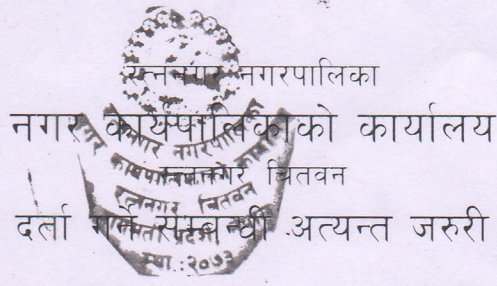 रत्ननगर नगरपालिका
नगर कार्यपालिकाको कार्यालय
रत्ननगर चितवन
दर्ता गर्ने सम्बन्धी अत्यन्त जरुरी
रत्ननगर नगरपालिका
नगर कार्यपालिकाको कार्यालय
रत्ननगर चितवन
स्था.:२०७३